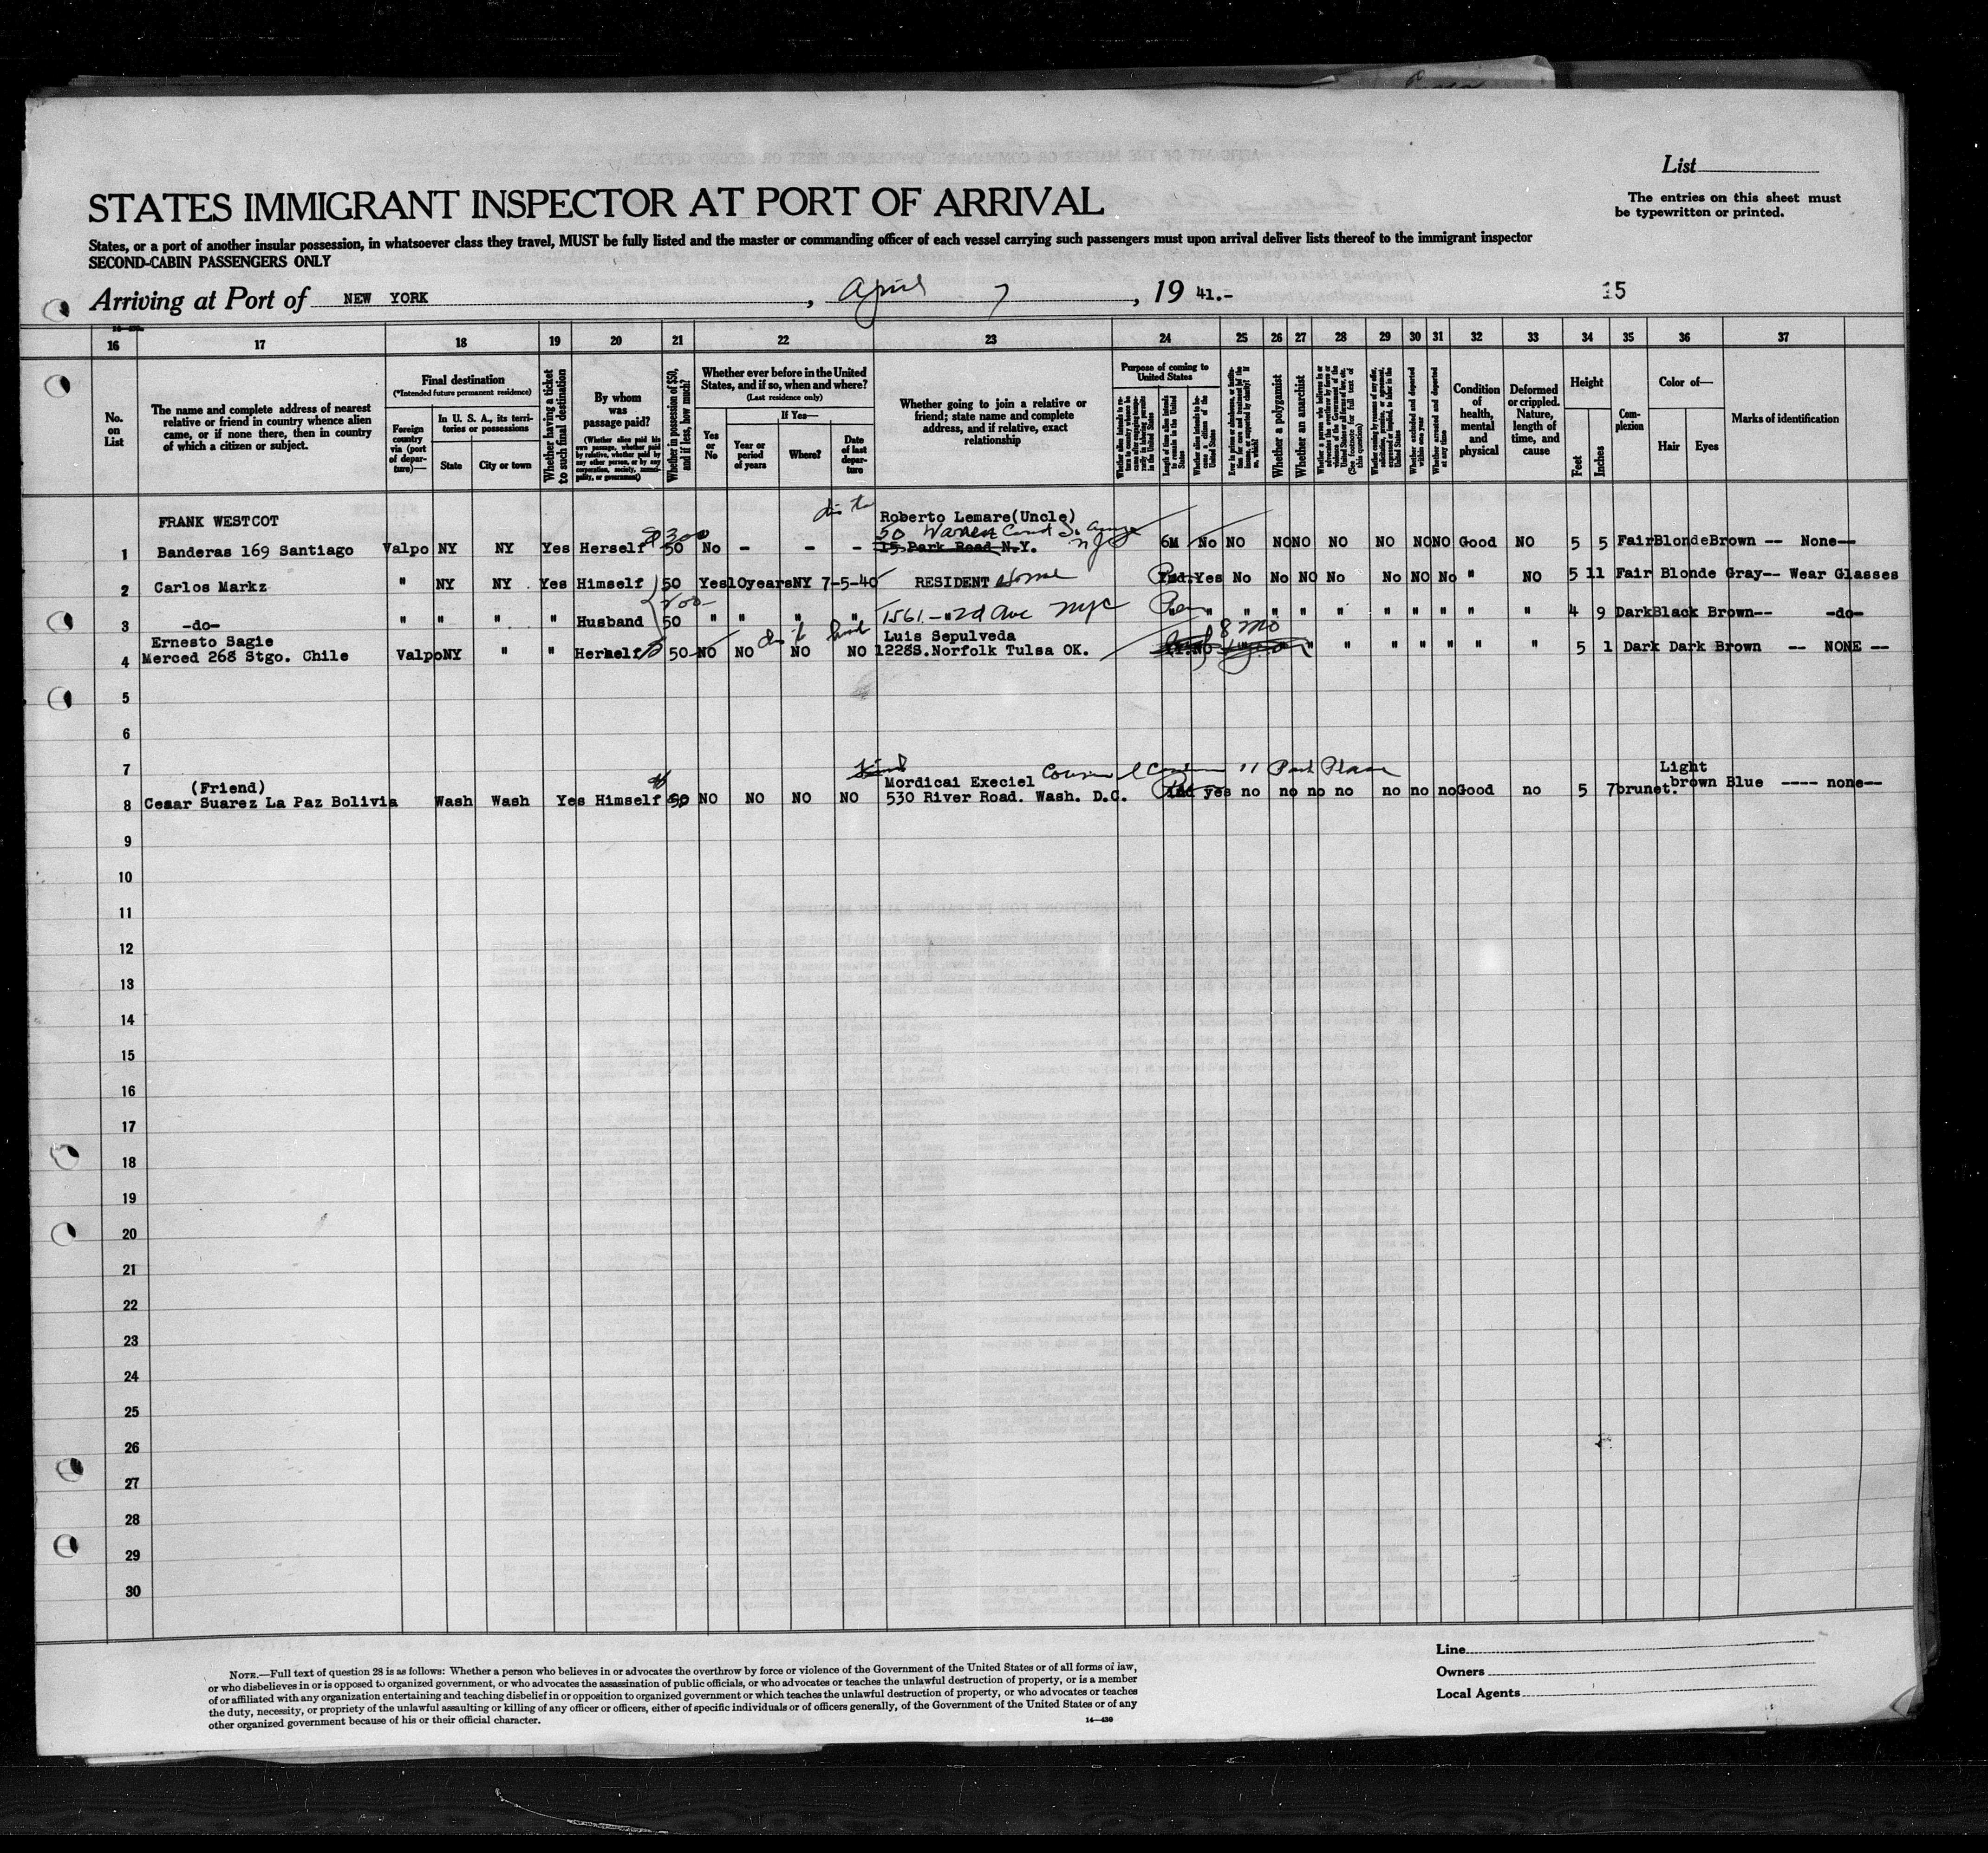 List
STATES IMMIGRANT INSPECTOR AT PORT OF ARRIVAL
The entries on this sheet must
be typewritten or printed.
States, or a port of another insular possession, in whatsoever class they travel, MUST be fully listed and the master or commanding officer of each vessel carrying such passengers must upon arrival deliver lists thereof to the immigrant inspector
SECOND-CABIN PASSENGERS ONLY
Arriving at Port of NEW YORK, April 7, 19 41.-
15
16 17 18 19 20 21 22 23 24 25 26 27 28 29 30 31 32 33 34 35 36 37
No. on List
The name and complete address of nearest relative or friend in country whence alien came, or if none there, then in country of which a citizen or subject.
Final destination
(*Intended future permanent residence)
Foreign country via (port of departure)—
In U. S. A., its territories or possessions
State
City or town
Whether having a ticket to such final destination
By whom was passage paid?
(Whether alien paid his own passage, whether paid by relative, whether paid by any other person, or by any corporation, society, municipality, or government)
Whether in possession of $50, and if less, how much?
Whether ever before in the United States, and if so, when and where?
(Last residence only)
Yes or No
If Yes—
Year or period of years
Where?
Date of last departure
Whether going to join a relative or friend; state name and complete address, and if relative, exact relationship
Purpose of coming to United States
Length of time alien intends to remain in the United States
Whether alien intends to become a citizen of the United States
Whether a polygamist
Whether an anarchist
Whether excluded and deported within one year
Whether arrested and deported at any time
Condition of health, mental and physical
Deformed or crippled. Nature, length of time, and cause
Height
Feet
Inches
Complexion
Color of—
Hair
Eyes
Marks of identification
FRANK WESTCOT Roberto Lemare(Uncle)
300 50 Warren Court
1 Banderas 169 Santiago Valpo NY NY Yes Herself 50 No - - - 15 Park Road N.Y. 6M No NO NO NO NO NO NO NO Good NO 5 5 Fair Blonde Brown -- None--
2 Carlos Markz " NY NY Yes Himself 50 Yes 10years NY 7-5-40 RESIDENT Home Ind. Yes No No NO No No NO No " NO 5 11 Fair Blonde Gray-- Wear Glasses
3 -do- " " " " Husband 50 " " " " 1561 - 2d Ave NYC " " " " " " " " " " 4 9 Dark Black Brown-- -do-
Ernesto Sagie Luis Sepulveda 8 mo
4 Merced 268 Stgo. Chile Valpo NY " " Herself 50 NO NO NO NO 1228S.Norfolk Tulsa OK. NO " " " " " " " 5 1 Dark Dark Brown -- NONE --
5
6
7 Light
(Friend) Mordicai Execiel Cousin 11 Park Place
8 Cesar Suarez La Paz Bolivia Wash Wash Yes Himself 50 NO NO NO NO 530 River Road. Wash. D.C. Ind yes no no no no no no no Good no 5 7 brunet. brown Blue ---- none--
9
10
11
12
13
14
15
16
17
18
19
20
21
22
23
24
25
26
27
28
29
30
NOTE.—Full text of question 28 is as follows: Whether a person who believes in or advocates the overthrow by force or violence of the Government of the United States or of all forms of law,
or who disbelieves in or is opposed to organized government, or who advocates the assassination of public officials, or who advocates or teaches the unlawful destruction of property, or is a member
of or affiliated with any organization entertaining and teaching disbelief in or opposition to organized government or which teaches the unlawful destruction of property, or who advocates or teaches
the duty, necessity, or propriety of the unlawful assaulting or killing of any officer or officers, either of specific individuals or of officers generally, of the Government of the United States or of any
other organized government because of his or their official character.
14—430
Line
Owners
Local Agents